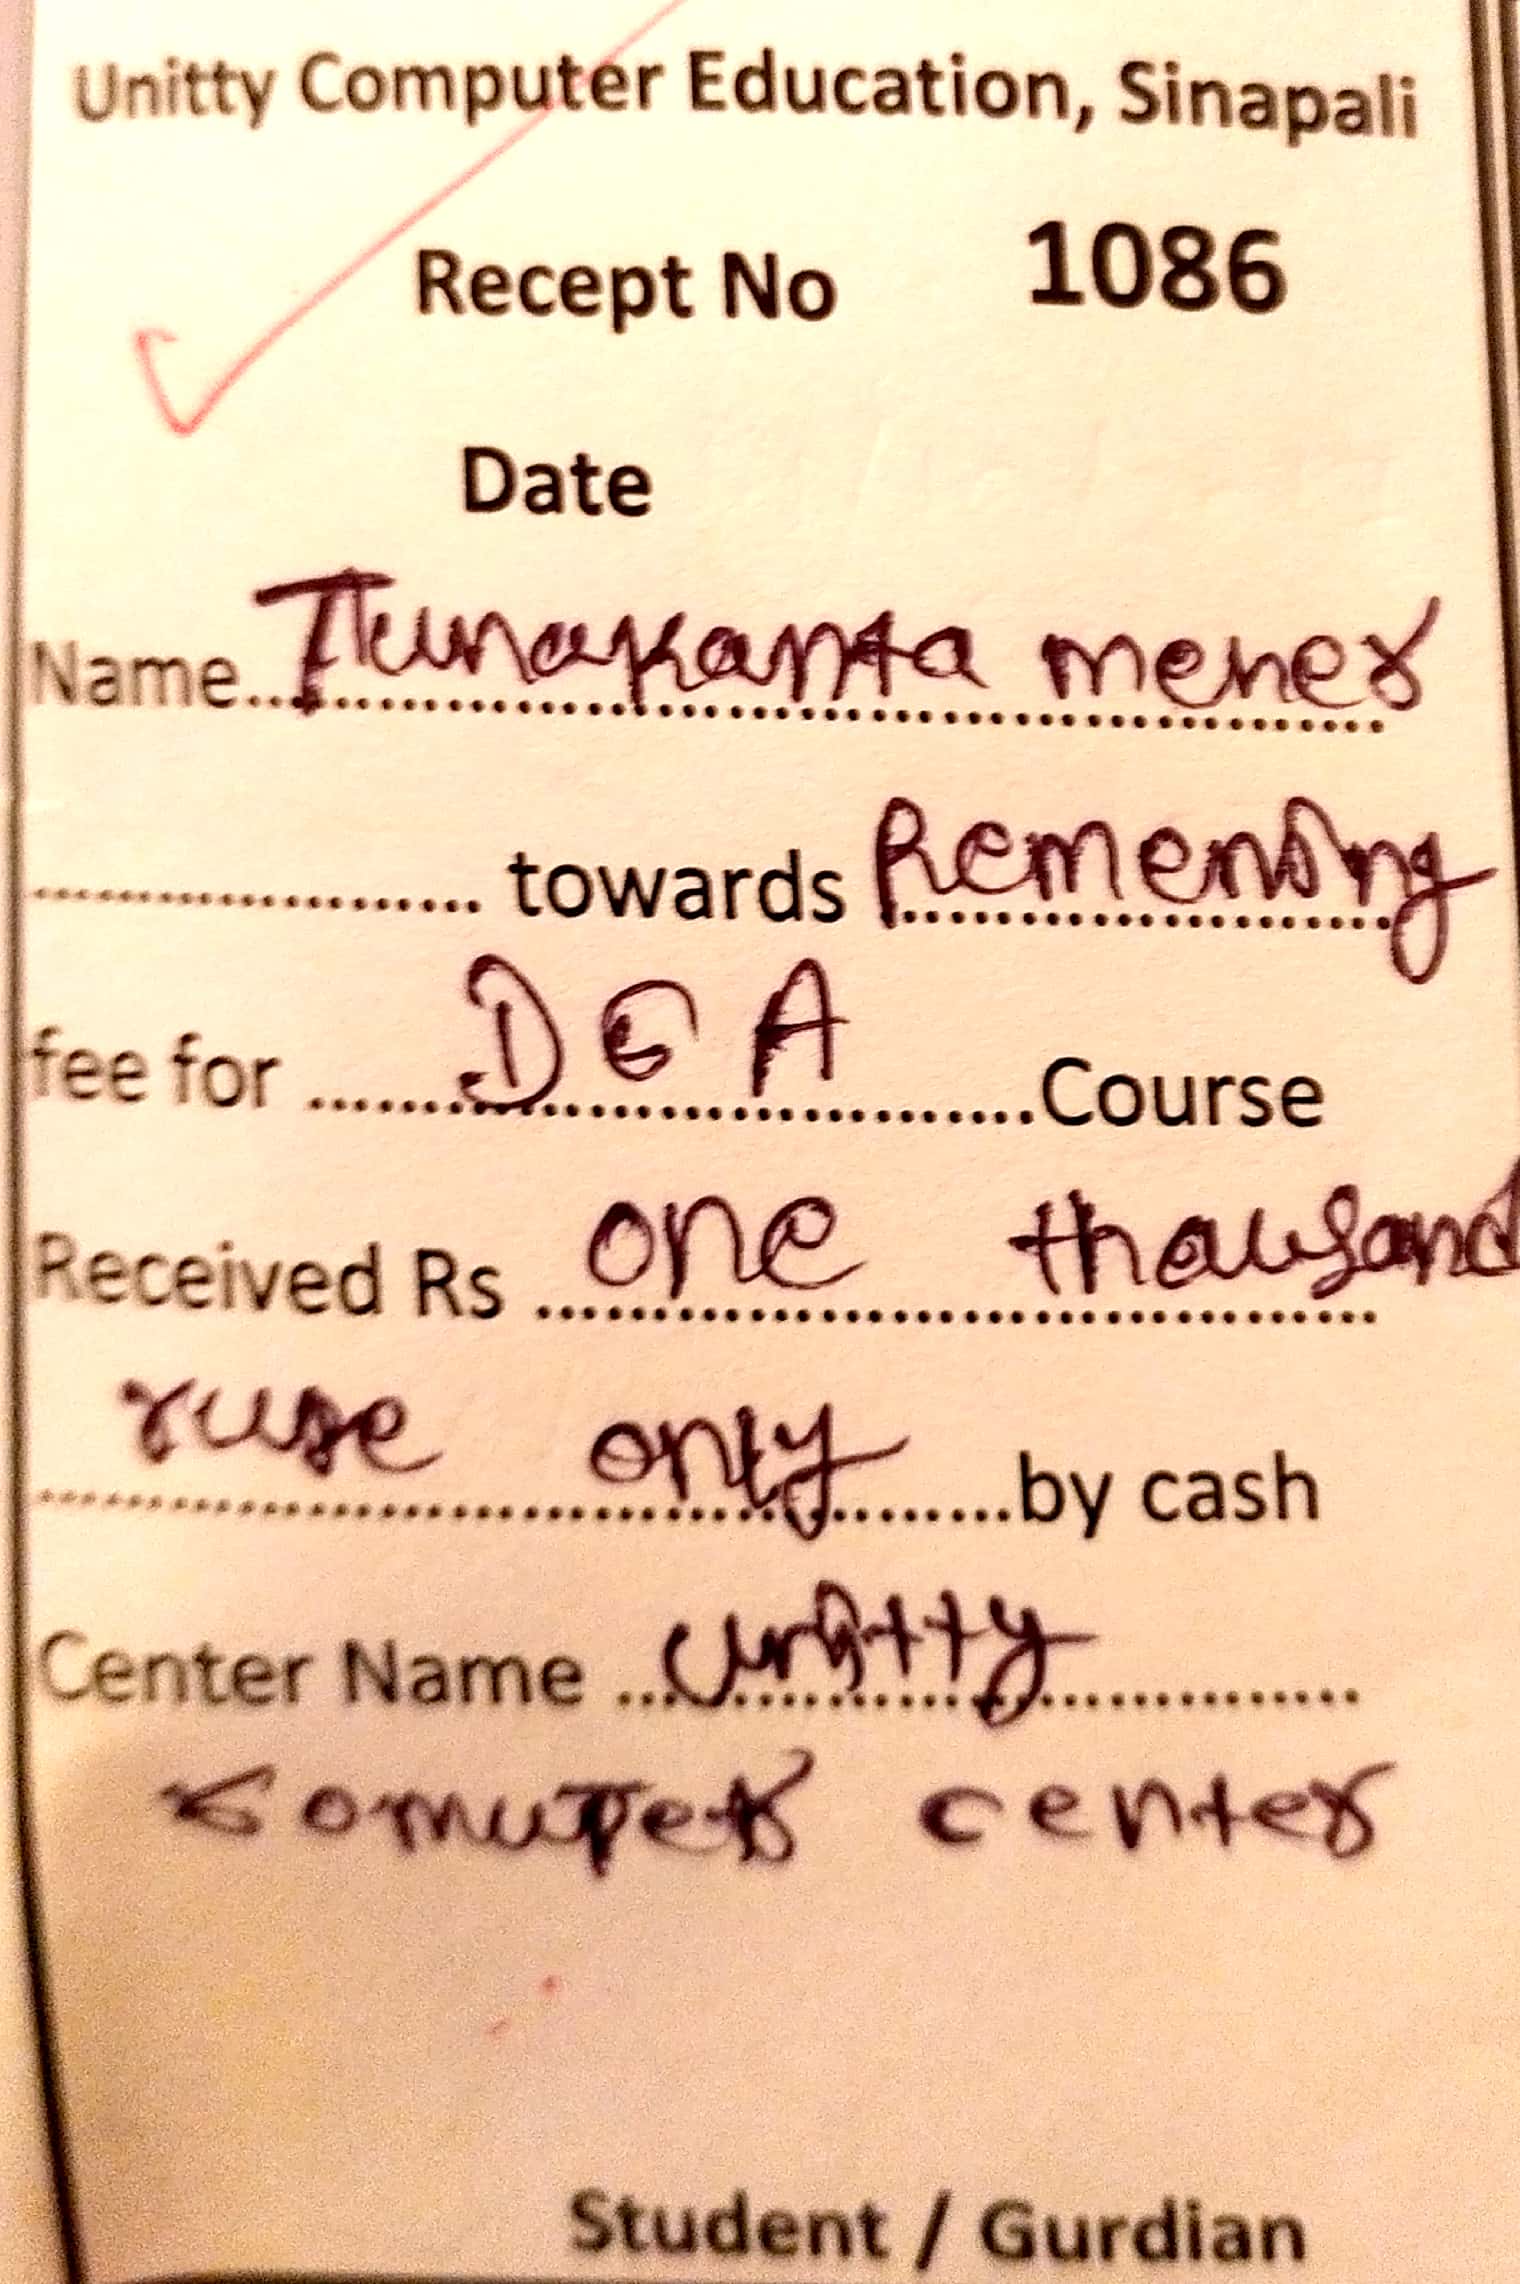 Unitty Computer Education, Sinapali
Recept No 1086
Date
Name.......... Tunakanta meher
.................... towards Remening
fee for .......... DCA ..........Course
Received Rs .......... one thousand
only ..........by cash
Center Name .......... Unitty
comuter center
Student / Gurdian